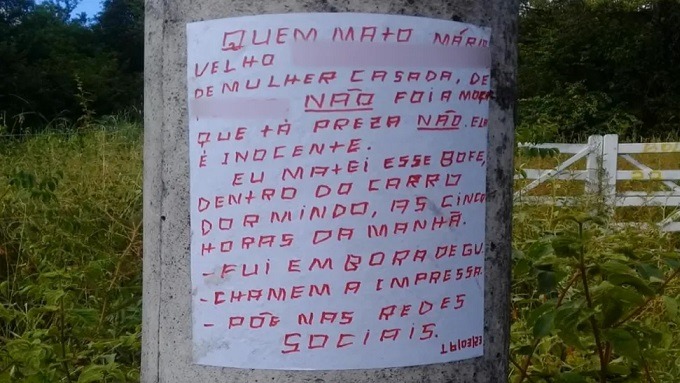 QUEM MATO MÁRIO
VELHO
DE MULHER CASADA, DE
NÃO FOI A MOÇA
QUE TÁ PREZA NÃO. ELA
É INOCENTE.
EU MATEI ESSE BOFE,
DENTRO DO CARRO
DORMINDO, AS CINCO
HORAS DA MANHÃ.
- FUI EMBORA DE GU.
- CHAMEM A IMPRESSA.
- PÕE NAS REDES
SOCIAIS.